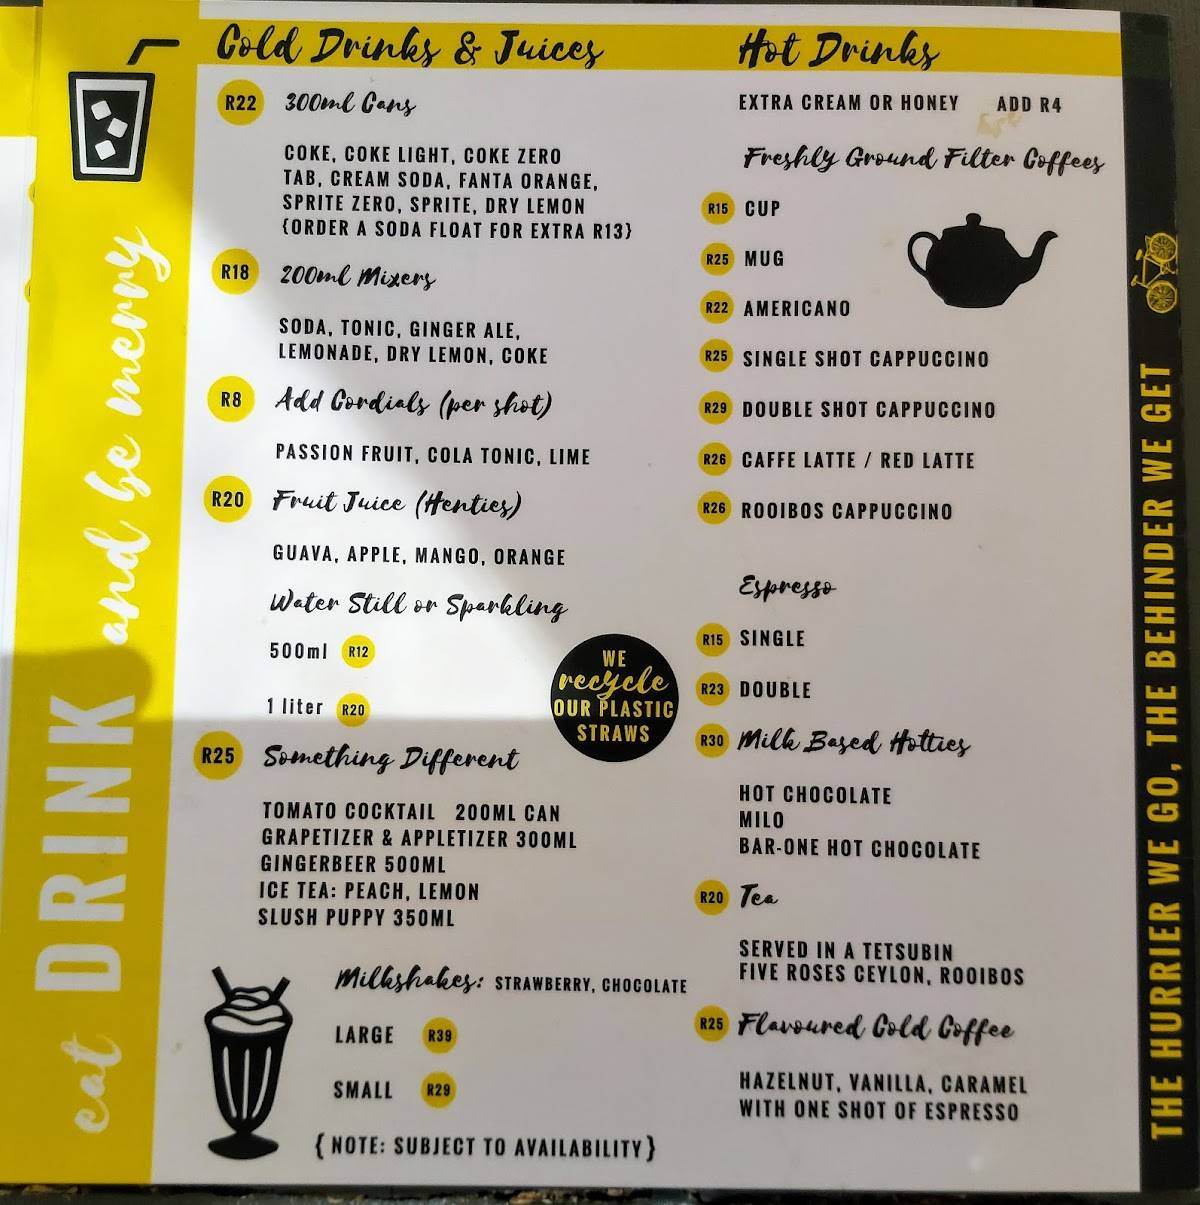 eat DRINK and be merry
Cold Drinks & Juices
R22 300ml Cans
COKE, COKE LIGHT, COKE ZERO
TAB, CREAM SODA, FANTA ORANGE,
SPRITE ZERO, SPRITE, DRY LEMON
{ORDER A SODA FLOAT FOR EXTRA R13}
R18 200ml Mixers
SODA, TONIC, GINGER ALE,
LEMONADE, DRY LEMON, COKE
R8 Add Cordials (per shot)
PASSION FRUIT, COLA TONIC, LIME
R20 Fruit Juice (Henties)
GUAVA, APPLE, MANGO, ORANGE
Water Still or Sparkling
500ml R12
1 liter R20
WE
recycle
OUR PLASTIC
STRAWS
R25 Something Different
TOMATO COCKTAIL 200ML CAN
GRAPETIZER & APPLETIZER 300ML
GINGERBEER 500ML
ICE TEA: PEACH, LEMON
SLUSH PUPPY 350ML
Milkshakes: STRAWBERRY, CHOCOLATE
LARGE R39
SMALL R29
{ NOTE: SUBJECT TO AVAILABILITY }
Hot Drinks
EXTRA CREAM OR HONEY ADD R4
Freshly Ground Filter Coffees
R15 CUP
R25 MUG
R22 AMERICANO
R25 SINGLE SHOT CAPPUCCINO
R29 DOUBLE SHOT CAPPUCCINO
R26 CAFFE LATTE / RED LATTE
R26 ROOIBOS CAPPUCCINO
Espresso
R15 SINGLE
R23 DOUBLE
R30 Milk Based Hotties
HOT CHOCOLATE
MILO
BAR-ONE HOT CHOCOLATE
R20 Tea
SERVED IN A TETSUBIN
FIVE ROSES CEYLON, ROOIBOS
R25 Flavoured Cold Coffee
HAZELNUT, VANILLA, CARAMEL
WITH ONE SHOT OF ESPRESSO
THE HURRIER WE GO, THE BEHINDER WE GET